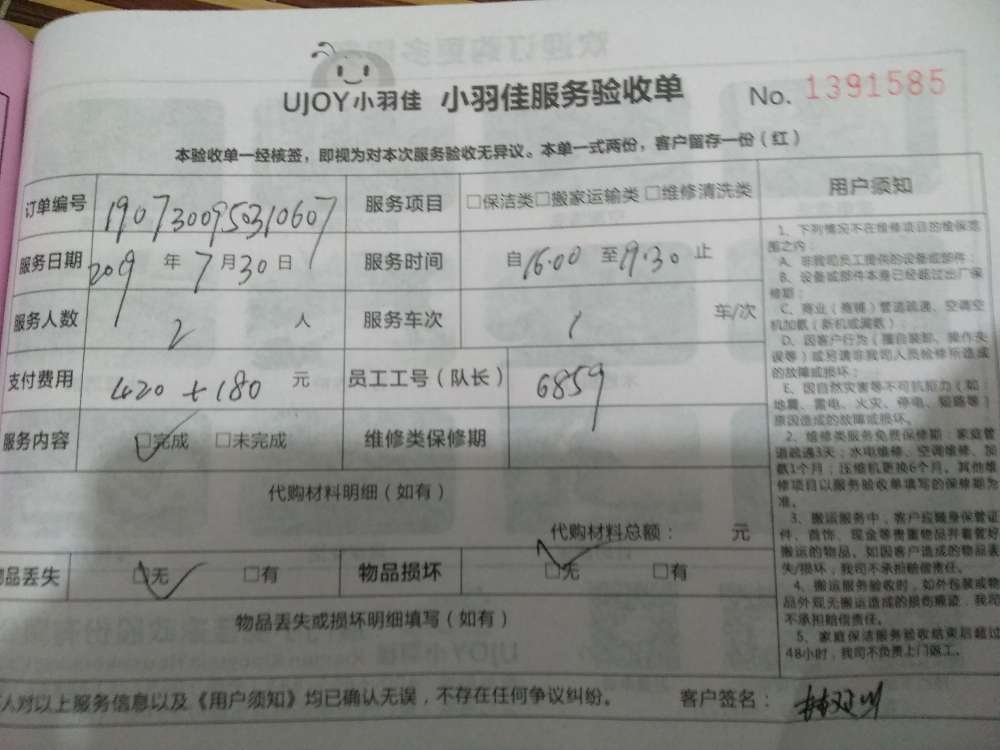 UJOY小羽佳 小羽佳服务验收单 No. 1391585
本验收单一经核签，即视为对本次服务验收无异议。本单一式两份，客户留存一份（红）
订单编号 190730095310607 服务项目 □保洁类□搬家运输类 □维修清洗类
服务日期 2019 年 7 月 30 日 服务时间 自 16:00 至 19:30 止
服务人数 2 人 服务车次 1 车/次
支付费用 420 + 180 元 员工工号（队长） 6859
服务内容 □完成 □未完成 维修类保修期
代购材料明细（如有）
代购材料总额： 元
品丢失 □无 □有 物品损坏 □无 □有
物品丢失或损坏明细填写（如有）
人对以上服务信息以及《用户须知》均已确认无误，不存在任何争议纠纷。 客户签名：
用户须知
1、下列情况不在维修项目的维保范
围之内：
A、非我司员工提供的设备或部件；
B、设备或部件本身已经超过出厂保
修期；
C、商业（商铺）管道疏通、空调空
机加氨（新机或漏氨）；
D、因客户行为（擅自装卸、操作失
误等）或另请非我司人员检修所造成
的故障或损坏；
E、因自然灾害等不可抗拒力（如：
地震、雷电、火灾、停电、短路等）
原因造成的故障或损坏。
2、维修类服务免费保修期：家庭管
道疏通3天；水电维修、空调维修、加
氨1个月；压缩机更换6个月。其他维
修项目以服务验收单填写的保修期为
准。
3、搬运服务中，客户应随身保管证
件、首饰、现金等贵重物品并看管好
搬运的物品。如因客户造成的物品丢
失/损坏，我司不承担赔偿责任。
4、搬运服务验收时，如外包装或物
品外观无搬运造成的损伤痕迹，我司
不承担赔偿责任。
5、家庭保洁服务验收结束后超过
48小时，我司不负责上门返工。